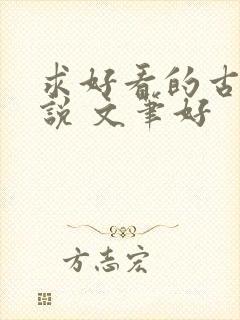 求好看的古
說 文筆好
方志宏